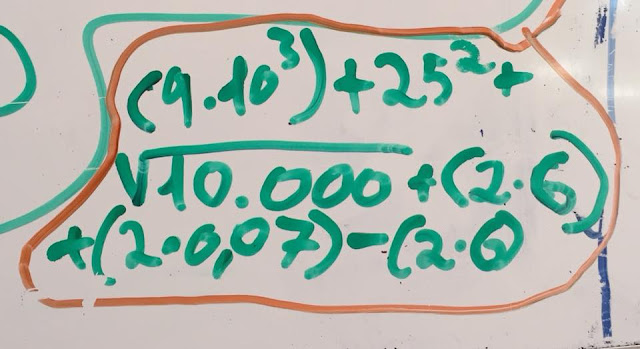 (9.10³)+25²+
√10.000+(2.6)
+(2.0,07)-(2.6)